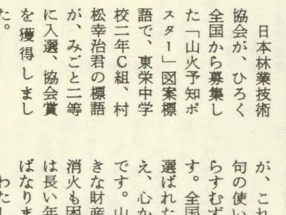 日本林業技術
協会が、ひろく
全国から募集し
た「山火予知ポ
スター」図案標
語で、東栄中学
校二年C組、村
松幸治君の標語
が、みごと二等
に入選、協会賞
を獲得しまし
た。
が、これ
句の使い
らすむず
す。全国
選ばれた
え、心か
です。山
きな財産
消火も困
は長い年
ばなりま
わたし